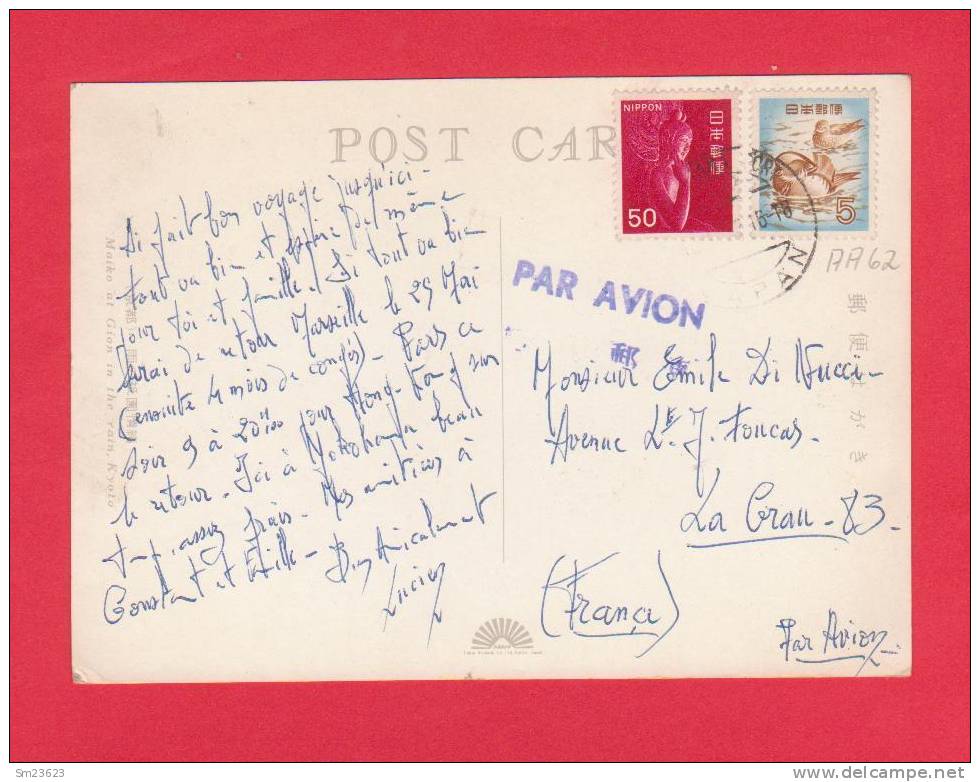 POST CAR
NIPPON
日本郵便
50
日本郵便
5
15-18
JAPAN
AA62
PAR AVION
郵便はがき
Ai fait bon voyage jusqu'ici -
tout va bien et espère de même
pour toi et famille. Si tout va bien
serai de retour Marseille le 29 Mai
(ensuite 4 mois de congés) - Pars ce
soir 9 à 20h00 pour Hong-Kong sur
le retour. Ici à Yokohama beau
temps, assez frais. Mes amitiés à
Constant et famille - Bien Amicalement
Lucien
Monsieur Emile Di Nucci -
Avenue Lt J. Toucas.
La Crau - 83 -
(France)
Par Avion
Maiko at Gion in the rain, Kyoto
Sm23623
delcampe.net